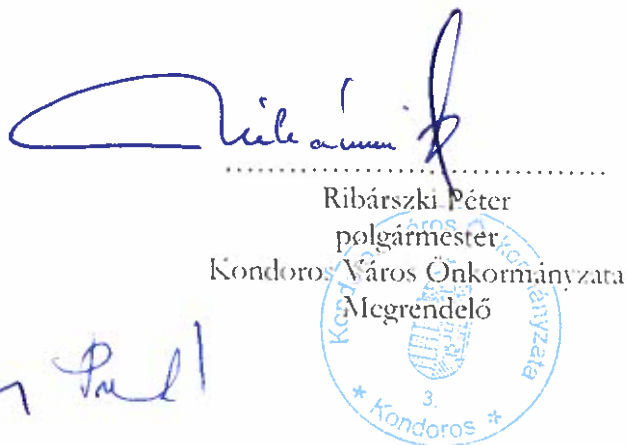 Ribárszki Péter
polgármester
Kondoros Város Önkormányzata
Megrendelő
Kondoros Város Önkormányzata
3.
* Kondoros *